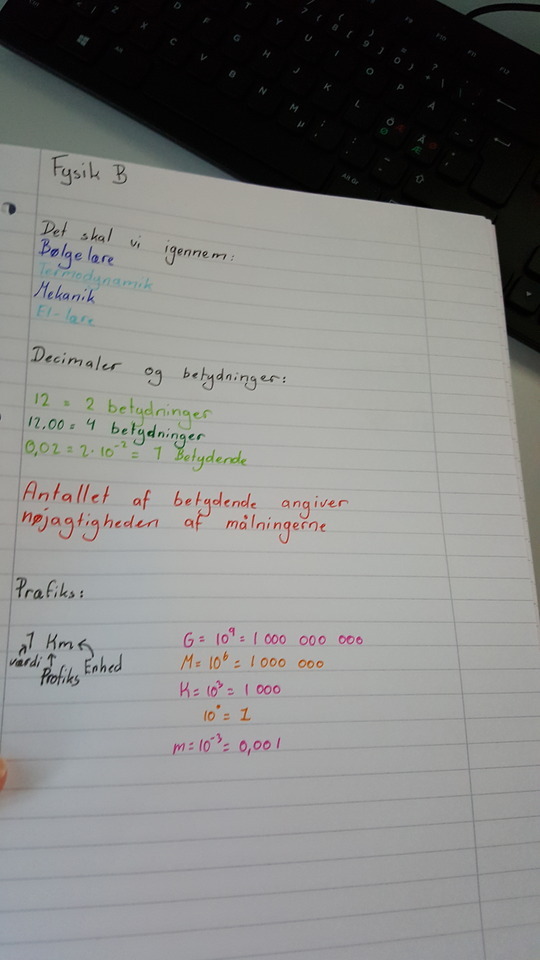 Fysik B
Det skal vi igennem:
Bølgelære
Termodynamik
Mekanik
El-lære
Decimaler og betydninger:
12 = 2 betydninger
12,00 = 4 betydninger
0,02 = 2·10⁻² = 1 Betydende
Antallet af betydende angiver
nøjagtigheden af målningerne
Præfiks:
1 Km
værdi Præfiks Enhed
G = 10⁹ = 1 000 000 000
M = 10⁶ = 1 000 000
K = 10³ = 1 000
10° = 1
m = 10⁻³ = 0,001